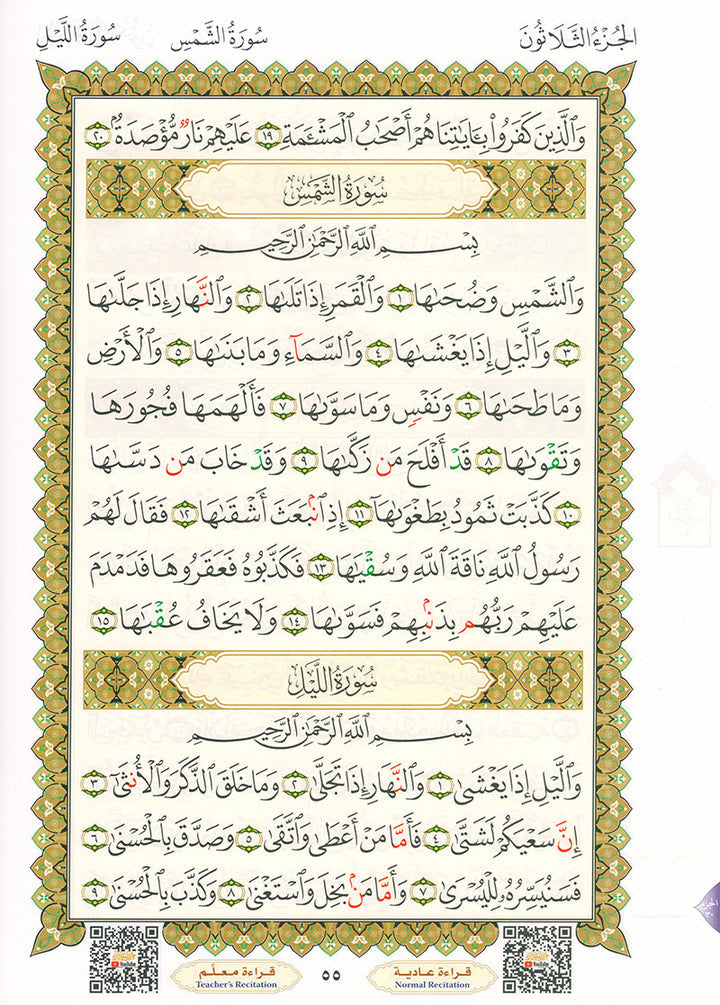 الجُزْءُ الثَّلَاثُونَ سُورَةُ الشَّمْسِ سُورَةُ اللَّيْلِ
وَالَّذِينَ كَفَرُوا۟ بِـَٔايَـٰتِنَا هُمْ أَصْحَـٰبُ الْمَشْـَٔمَةِ ١٩ عَلَيْهِمْ نَارٌ مُّؤْصَدَةٌۢ ٢٠
سُورَةُ الشَّمْسِ
بِسْمِ اللَّهِ الرَّحْمَـٰنِ الرَّحِيمِ
وَالشَّمْسِ وَضُحَىٰهَا ١ وَالْقَمَرِ إِذَا تَلَىٰهَا ٢ وَالنَّهَارِ إِذَا جَلَّىٰهَا
٣ وَالَّيْلِ إِذَا يَغْشَىٰهَا ٤ وَالسَّمَآءِ وَمَا بَنَىٰهَا ٥ وَالْأَرْضِ
وَمَا طَحَىٰهَا ٦ وَنَفْسٍ وَمَا سَوَّىٰهَا ٧ فَأَلْهَمَهَا فُجُورَهَا
وَتَقْوَىٰهَا ٨ قَدْ أَفْلَحَ مَن زَكَّىٰهَا ٩ وَقَدْ خَابَ مَن دَسَّىٰهَا
١٠ كَذَّبَتْ ثَمُودُ بِطَغْوَىٰهَآ ١١ إِذِ انۢبَعَثَ أَشْقَىٰهَا ١٢ فَقَالَ لَهُمْ
رَسُولُ اللَّهِ نَاقَةَ اللَّهِ وَسُقْيَـٰهَا ١٣ فَكَذَّبُوهُ فَعَقَرُوهَا فَدَمْدَمَ
عَلَيْهِمْ رَبُّهُم بِذَنۢبِهِمْ فَسَوَّىٰهَا ١٤ وَلَا يَخَافُ عُقْبَـٰهَا ١٥
سُورَةُ اللَّيْلِ
بِسْمِ اللَّهِ الرَّحْمَـٰنِ الرَّحِيمِ
وَالَّيْلِ إِذَا يَغْشَىٰ ١ وَالنَّهَارِ إِذَا تَجَلَّىٰ ٢ وَمَا خَلَقَ الذَّكَرَ وَالْأُنثَىٰٓ ٣
إِنَّ سَعْيَكُمْ لَشَتَّىٰ ٤ فَأَمَّا مَنْ أَعْطَىٰ وَاتَّقَىٰ ٥ وَصَدَّقَ بِالْحُسْنَىٰ ٦
فَسَنُيَسِّرُهُۥ لِلْيُسْرَىٰ ٧ وَأَمَّا مَنۢ بَخِلَ وَاسْتَغْنَىٰ ٨ وَكَذَّبَ بِالْحُسْنَىٰ ٩
قراءة عادية ٥٥ قراءة معلّم
Normal Recitation Teacher's Recitation
YouTube YouTube